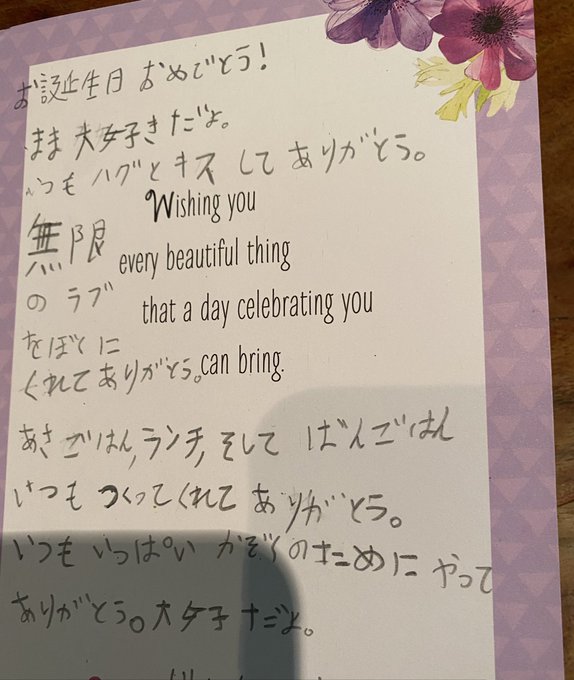 お誕生日 おめでとう!
まま 大好きだよ。
いつも ハグと キス して ありがとう。
無限
Wishing you
every beautiful thing
の ラブ
that a day celebrating you
をぼくに
can bring.
くれてありがとう。
あさごはん,ランチ,そして ばんごはん
いつも つくってくれて ありがとう。
いつも いっぱい かぞくのために やって
ありがとう。大好きだよ。